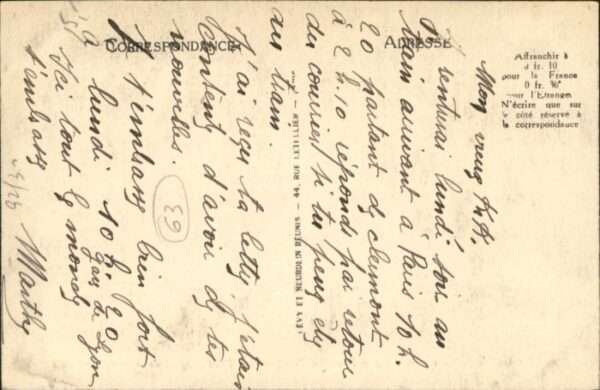 CORRESPONDANCE
ADRESSE
Affranchir à
0 fr. 10
pour la France
0 fr.
pour l'Etranger
N'écrire que sur
le côté réservé à
la correspondance
Mon vieux
rentrerai lundi soir au
train arrivant à Paris 10 h.
20 partant de Clermont
à 2 h. 10 réponds par retour
du courrier si tu peux être
au train.
J'ai reçu ta lettre j'étais
contente d'avoir de tes
nouvelles.
Je t'embrasse bien fort
à lundi 10 h. 20
gare de Lyon
Ici tout le monde
t'embrasse
Marthe
39
LEVY ET NEURDEIN REUNIS